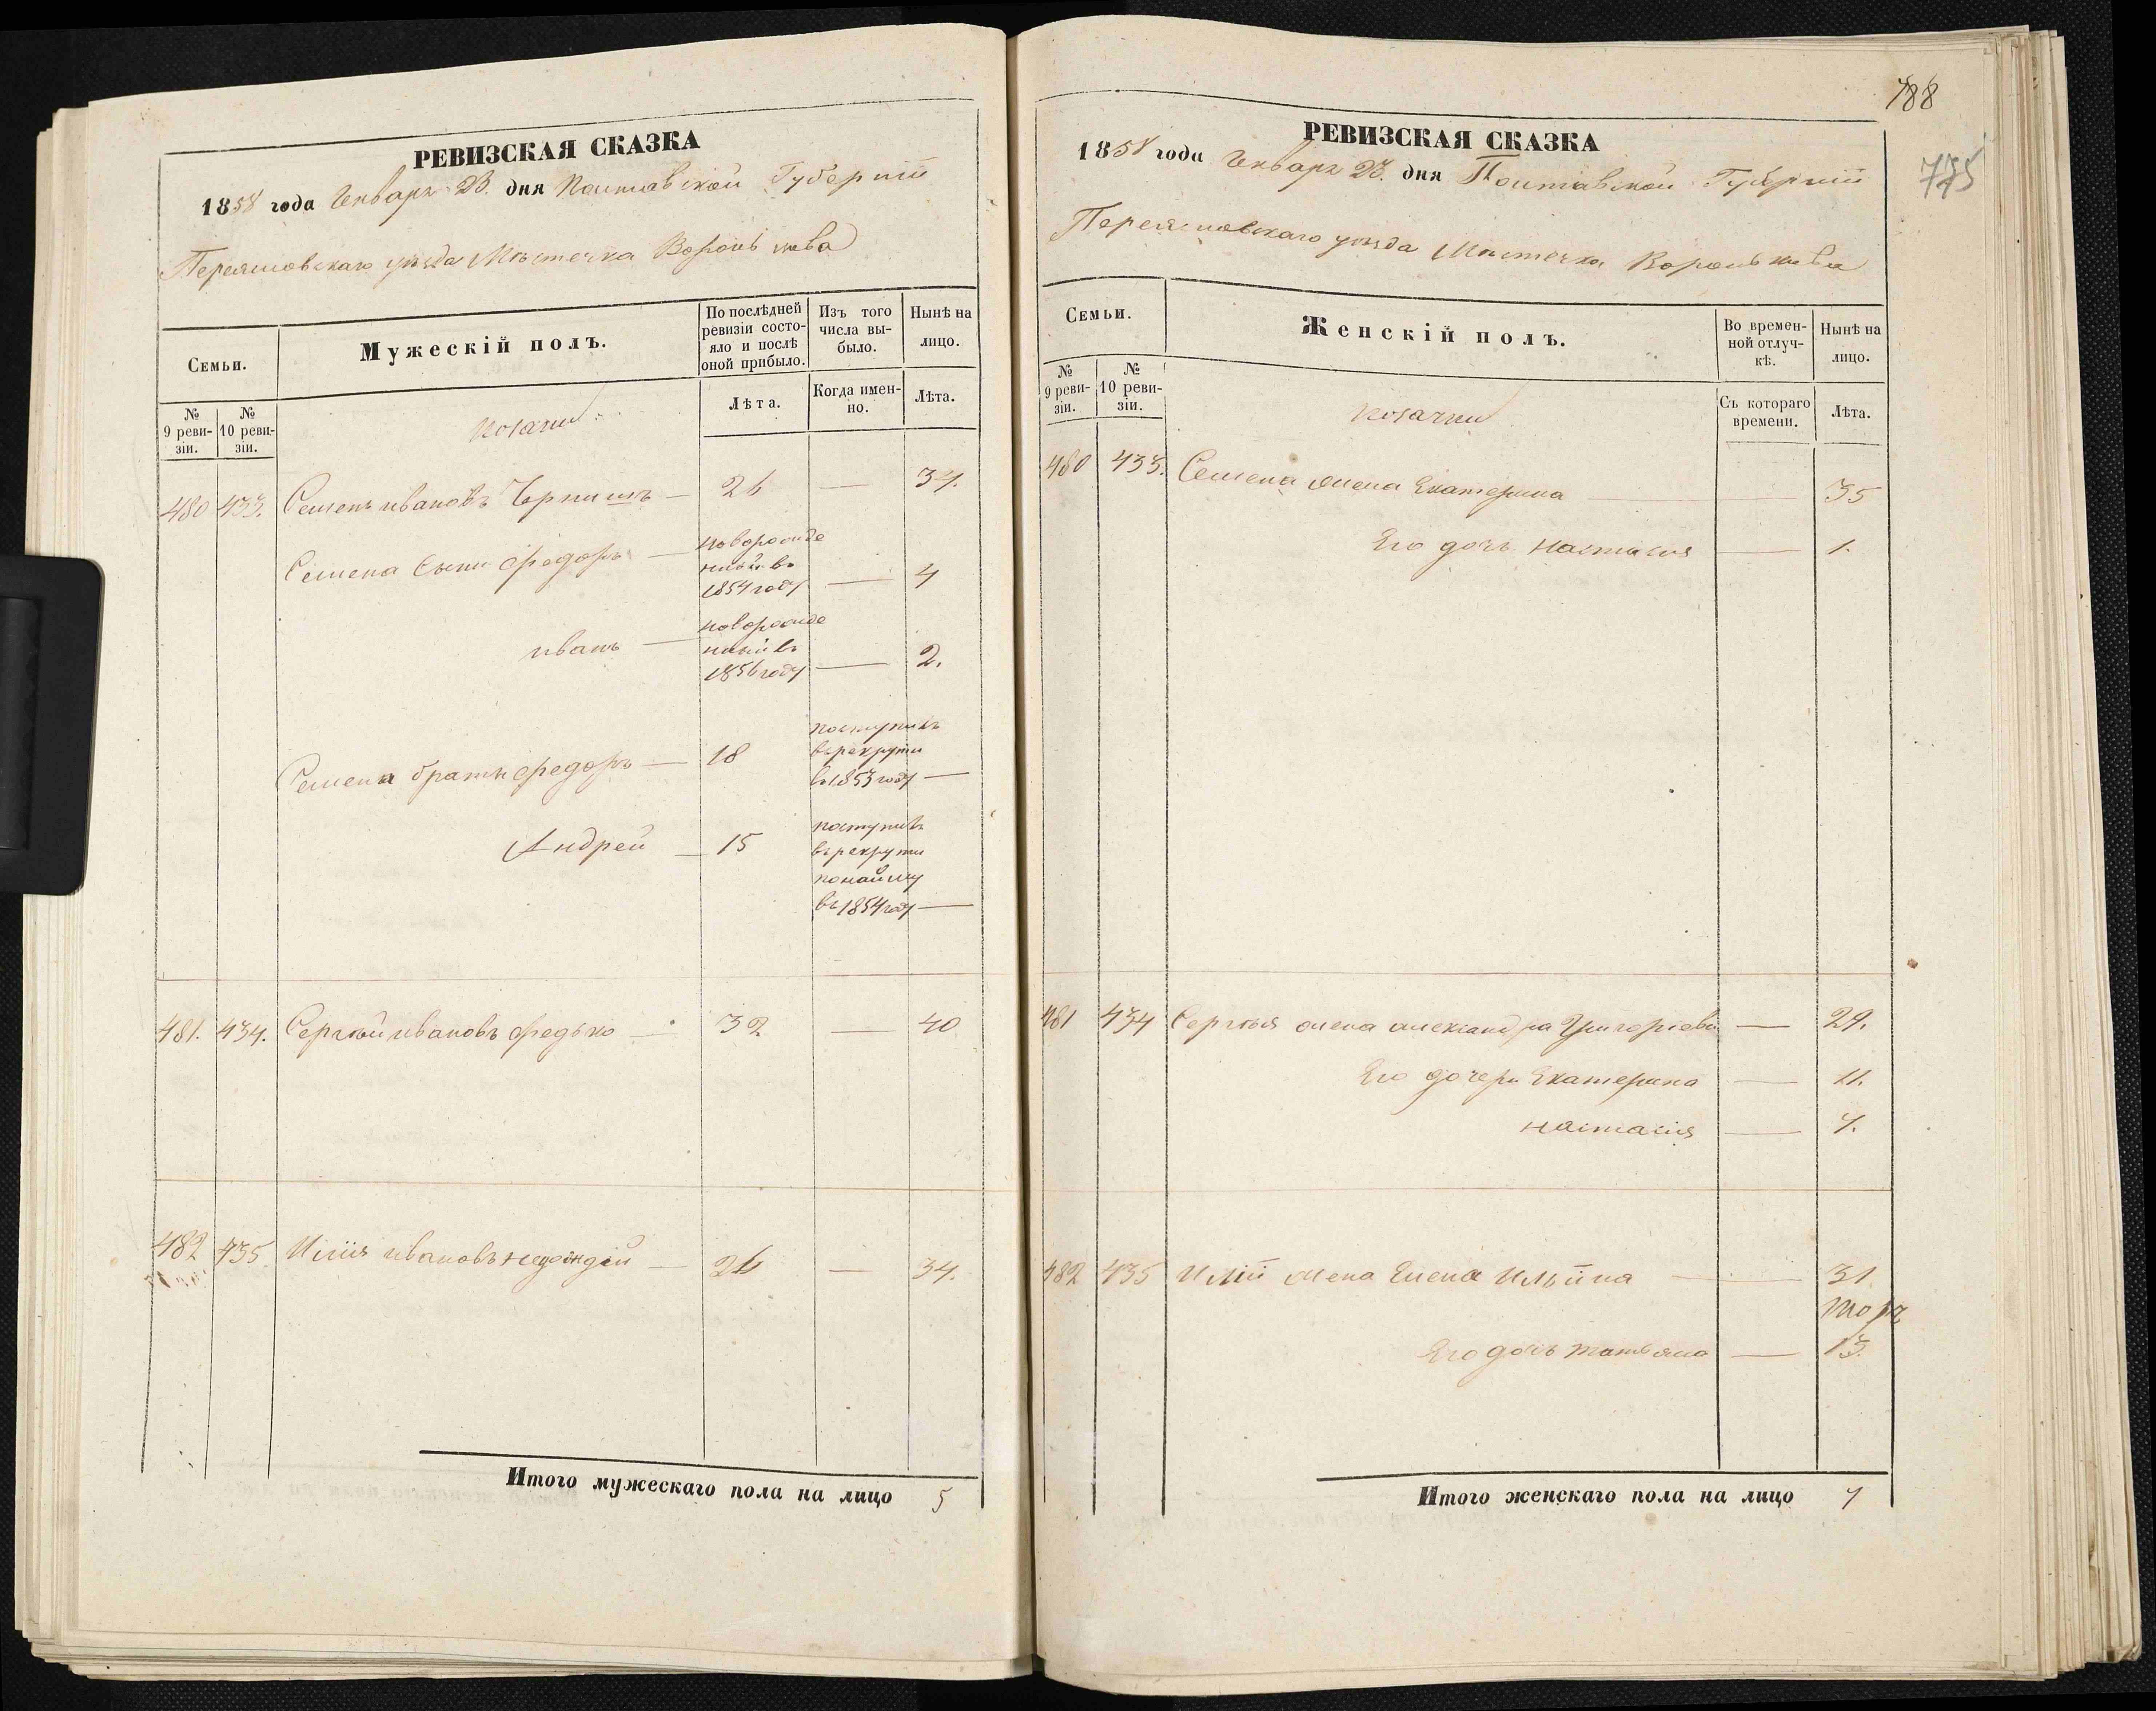 РЕВИЗСКАЯ СКАЗКА
1858 года Генваря 23. дня Полтавской Губерніи
Переяславскаго уѣзда Мѣстечка Воронькова
Семьи.
Мужескій полъ.
По послѣдней ревизіи состояло и послѣ оной прибыло.
Изъ того числа выбыло.
Нынѣ на лицо.
№ 9 ревизіи.
№ 10 ревизіи.
Козаки
Лѣта.
Когда именно.
Лѣта.
480 433. Семенъ Ивановъ Чернишъ — 26 — 34.
Семена сыни Федоръ — новорожденій въ 1854 году — 4
Иванъ — новорожденій въ 1856 году — 2.
Семена братья Федоръ — 18 поступилъ въ рекруты въ 1853 году —
Андрей — 15 поступилъ въ рекруты по найму въ 1854 году —
481. 434. Сергѣй Ивановъ Федько — 32 — 40
482 435. Илія Ивановъ — 26 — 34.
Итого мужескаго пола на лицо 5
188
775
РЕВИЗСКАЯ СКАЗКА
1858 года Генваря 23. дня Полтавской Губерніи
Переяславскаго уѣзда Мѣстечка Воронькова
Семьи.
Женскій полъ.
Во временной отлучкѣ.
Нынѣ на лицо.
№ 9 ревизіи.
№ 10 ревизіи.
Козачки
Съ котораго времени.
Лѣта.
480 433. Семена жена Екатерина — 35
Его дочь Настасія — 1.
481 434 Сергѣя жена Александра Григоріева — 29.
Его дочери Екатерина — 11.
Настасія — 7.
482 435 Иліи жена Елена Ильина — 31.
Его дочь Татьяна — 13.
Итого женскаго пола на лицо 7